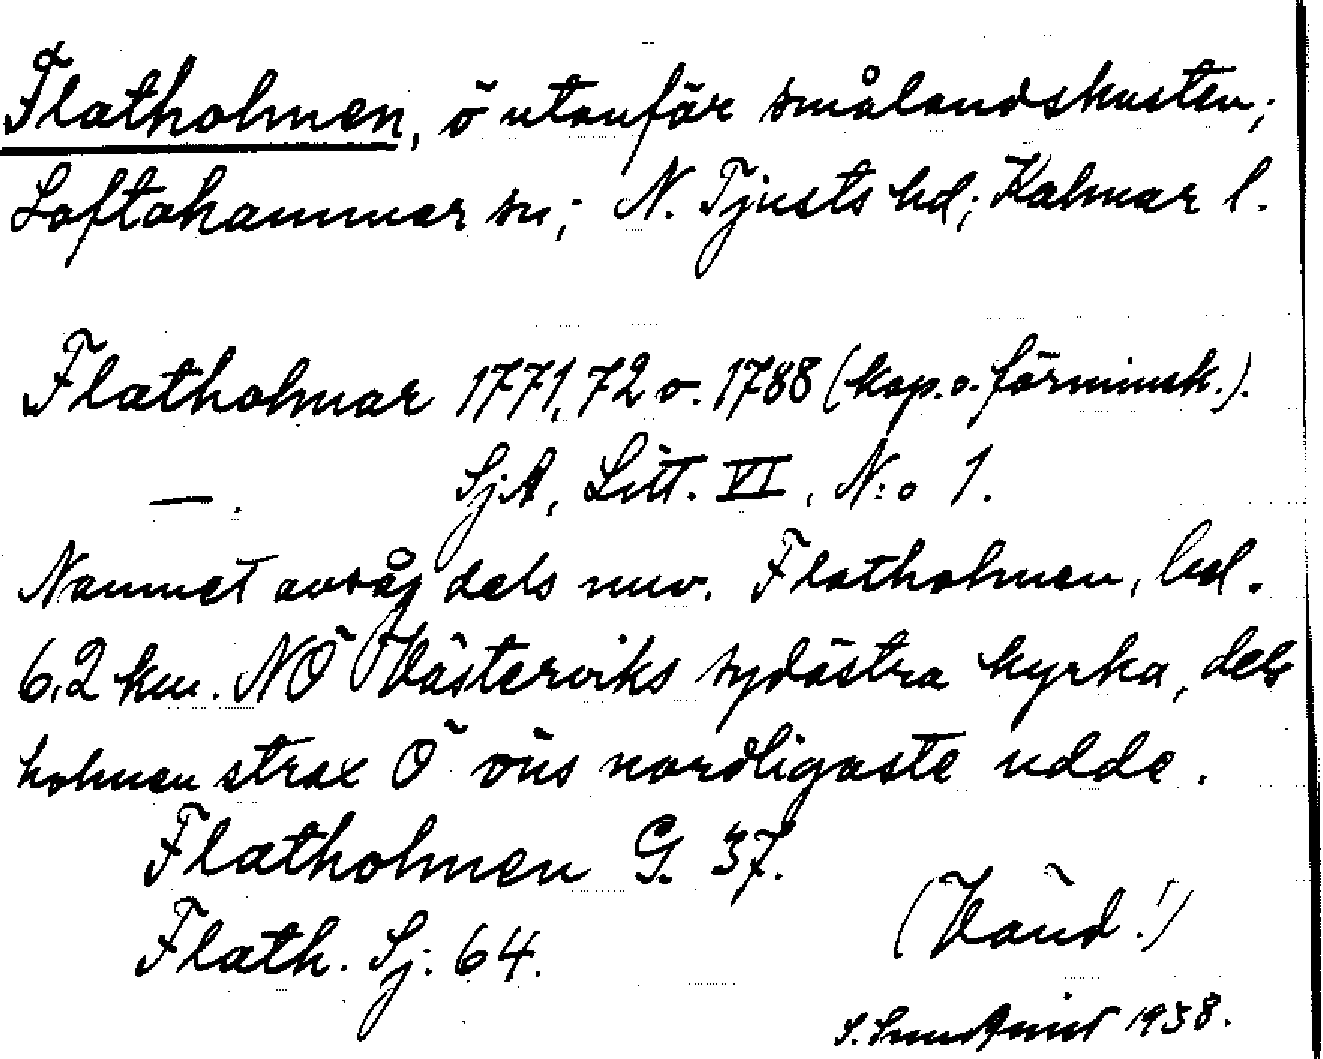 Flatholmen, ö utanför smålandskusten;
Loftahammar sn; N. Tjusts hd; Kalmar l.
Flatholmar 1771, 72 o. 1788 (kop. o. förminsk.).
—. SjA, Litt. VI, N:o 1.
Namnet avsåg dels nuv. Flatholmen, bel.
6,2 km. NÖ Västerviks sydöstra kyrka, dels
holmen strax Ö öns nordligaste udde.
Flatholmen G. 37.
Flath. Sj: 64.
(Vänd!)
S. 1938.